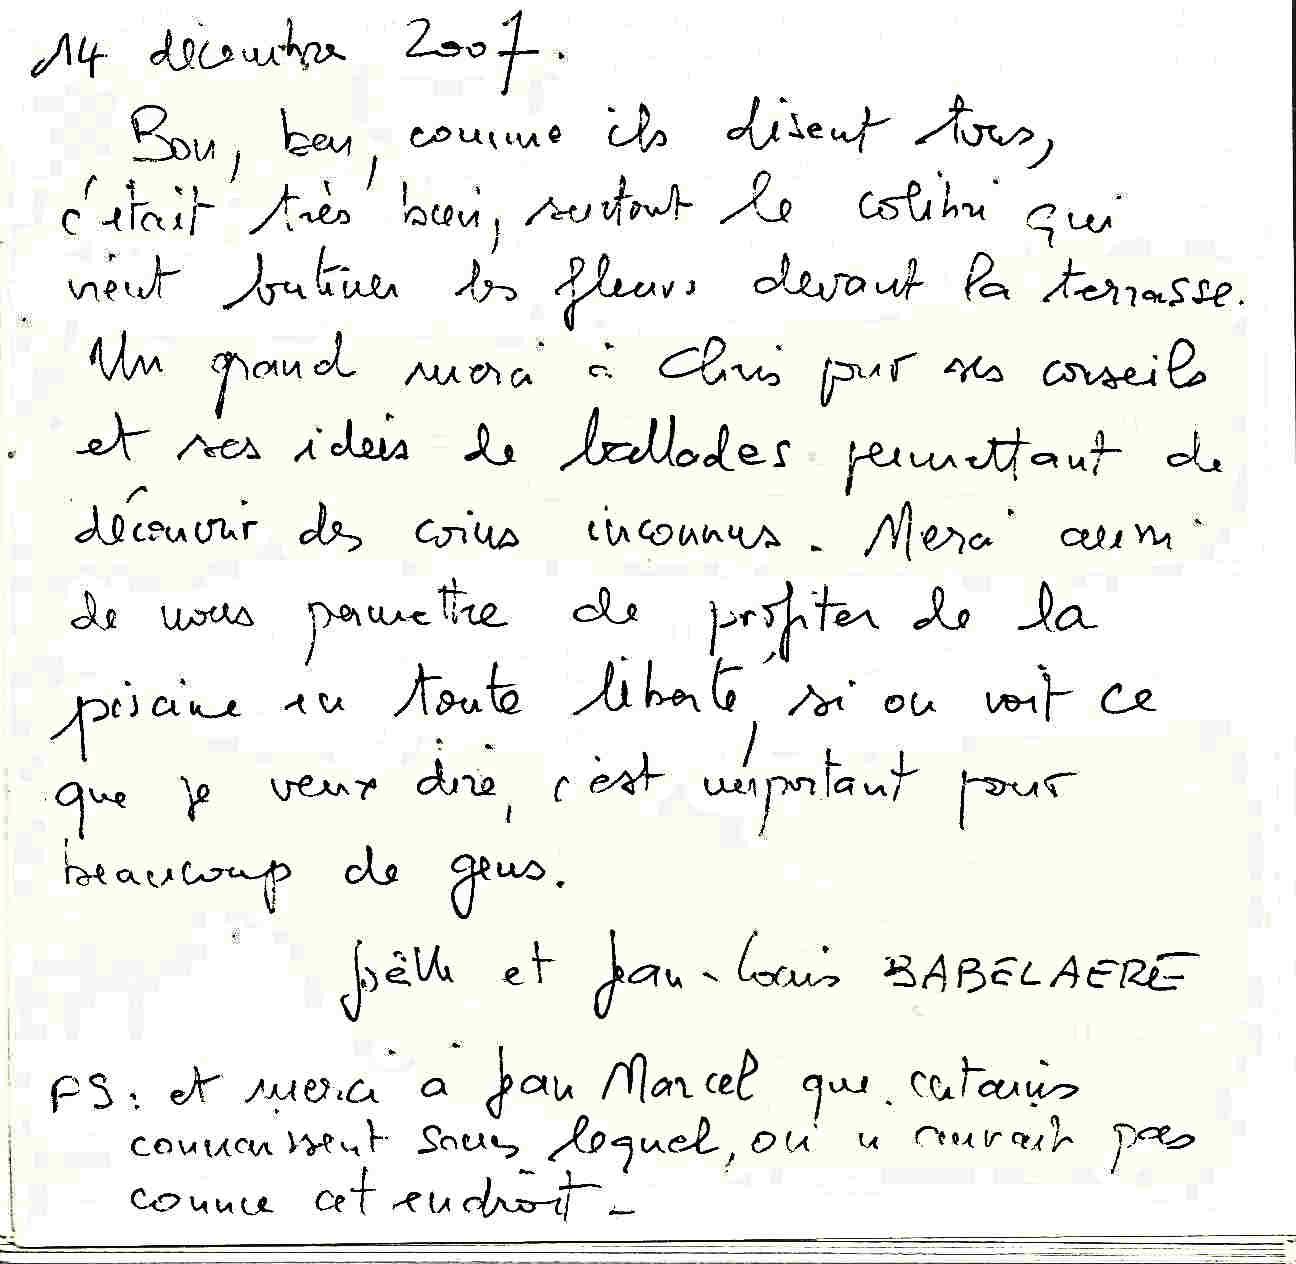 14 décembre 2007.
Bon, ben, comme ils disent tous,
c'était très bien, surtout le colibri qui
vient butiner les fleurs devant la terrasse.
Un grand merci à Chris pour ses conseils
et ses idées de ballades permettant de
découvrir des coins inconnus. Merci aussi
de nous permettre de profiter de la
piscine en toute liberté, si on voit ce
que je veux dire, c'est important pour
beaucoup de gens.
Joëlle et Jean-Louis BABELAERE
PS: et merci à Jean Marcel que certains
connaissent sans lequel, on n'aurait pas
connu cet endroit.